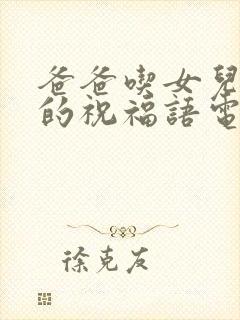 爸爸喫女兒
的祝福語電
徐克友